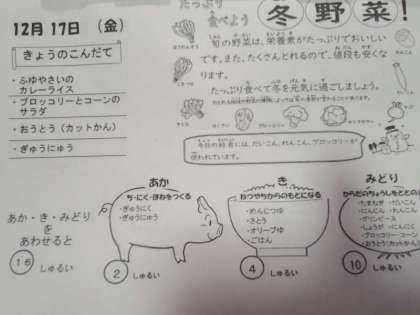 12月 17日 (金)
きょうのこんだて
・ふゆやさいの
カレーライス
・ブロッコリーとコーンの
サラダ
・おうとう(カットかん)
・ぎゅうにゅう
たっぷり
食べよう
冬野菜!
旬の野菜は、栄養素がたっぷりでおいしい
です。また、たくさんとれるので、値段も安くな
ります。
たっぷり食べて冬を元気に過ごしましょう。
今日の給食には、だいこん、れんこん、ブロッコリーが
使われています。
あか・き・みどり
を
あわせると
16 しゅるい
あか
ち・にく・ほねをつくる
・ぎゅうにく
・ぎゅうにゅう
2 しゅるい
き
ねつやちからのもとになる
・めんじつゆ
・さとう
・オリーブゆ
・ごはん
4 しゅるい
みどり
からだのちょうしをととの
・たまねぎ ・だいこん
・にんじん ・れんこん
・グリンピース
・しょうが ・にんにく
・ブロッコリー・コーン
・おうとう(カットかん)
10 しゅるい